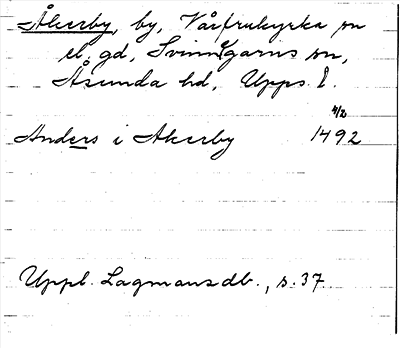 Åkerby, by, Vårfrukyrka sn
el. gd, Svinnegarns sn,
Åsunda hd, Upps. l.
4/2
Anders i Akerby 1492
Uppl. Lagmansdb., s. 37.